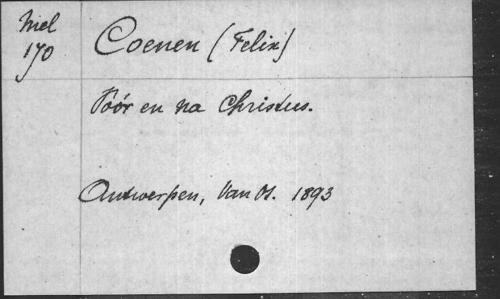 Mel
170
Coenen (Felix)
Vóór en na Christus.
Antwerpen, Van Os. 1893